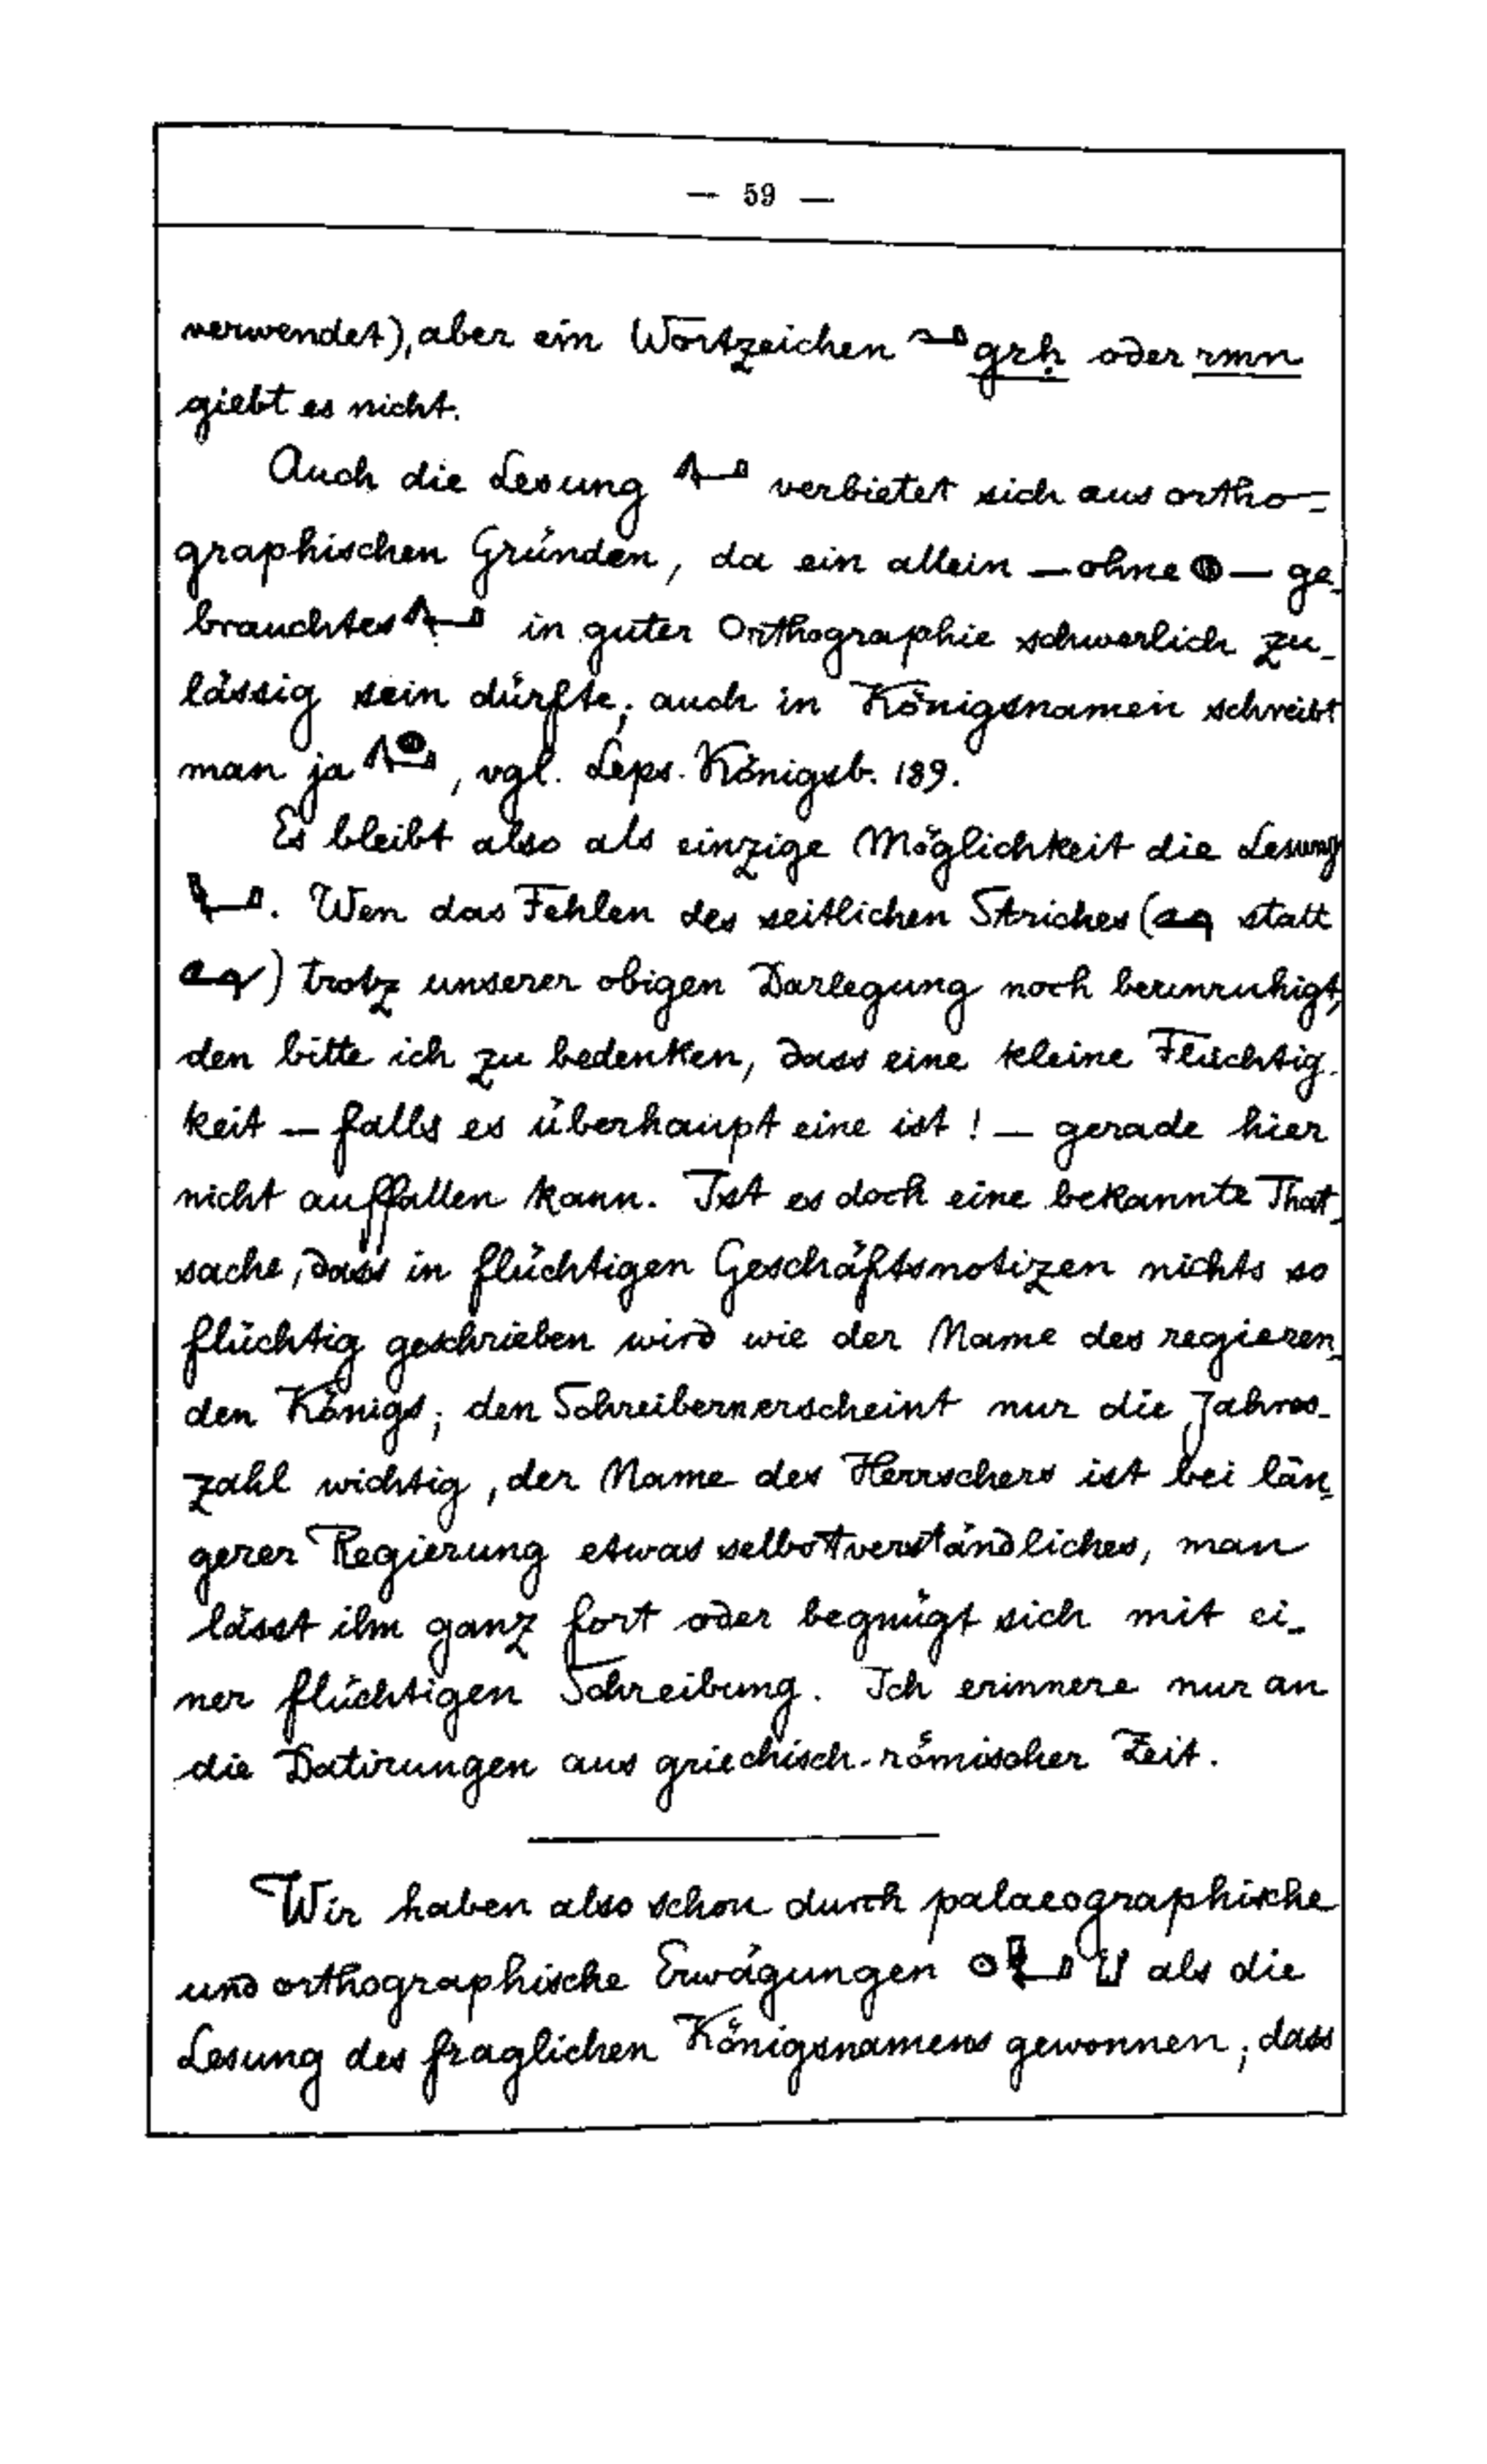 — 59 —
verwendet), aber ein Wortzeichen 𓂝 grḥ oder rmn
giebt es nicht.
Auch die Lesung verbietet sich aus ortho-
graphischen Gründen, da ein allein — ohne 𓐍 — ge-
brauchtes in guter Orthographie schwerlich zu-
lässig sein dürfte; auch in Königsnamen schreibt
man ja , vgl. Leps. Königsb. 189.
Es bleibt also als einzige Möglichkeit die Lesung
. Wen das Fehlen des seitlichen Striches ( statt
) trotz unserer obigen Darlegung noch beunruhigt,
den bitte ich zu bedenken, dass eine kleine Flüchtig-
keit — falls es überhaupt eine ist! — gerade hier
nicht auffallen kann. Ist es doch eine bekannte That-
sache, dass in flüchtigen Geschäftsnotizen nichts so
flüchtig geschrieben wird wie der Name des regieren-
den Königs; den Schreibern erscheint nur die Jahres-
zahl wichtig, der Name des Herrschers ist bei län-
gerer Regierung etwas selbstverständliches, man
lässt ihm ganz fort oder begnügt sich mit ei-
ner flüchtigen Schreibung. Ich erinnere nur an
die Datirungen aus griechisch-römischer Zeit.
Wir haben also schon durch palaeographische
und orthographische Erwägungen als die
Lesung des fraglichen Königsnamens gewonnen; dass